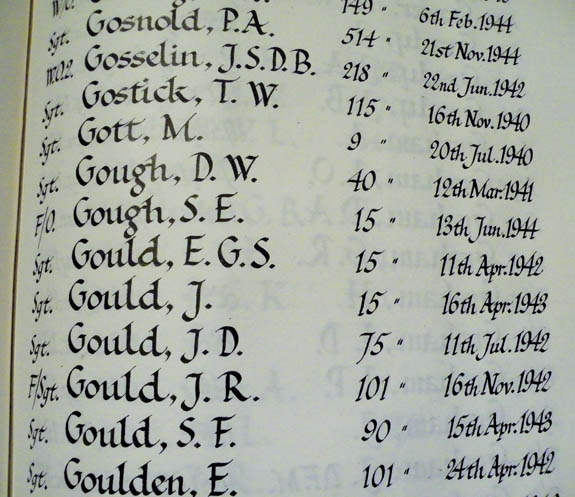 W/O. 149 " 6th Feb. 1944
Sgt. Gosnold, P. A. 514 " 21st Nov. 1944
W.O.2. Gosselin, J. S. D. B. 218 " 22nd Jun. 1942
Sgt. Gostick, T. W. 115 " 16th Nov. 1940
Sgt. Gott, M. 9 " 20th Jul. 1940
Sgt. Gough, D. W. 40 " 12th Mar. 1941
F/O. Gough, S. E. 15 " 13th Jun. 1944
Sgt. Gould, E. G. S. 15 " 11th Apr. 1942
Sgt. Gould, J. 15 " 16th Apr. 1943
Sgt. Gould, J. D. 75 " 11th Jul. 1942
F/Sgt. Gould, J. R. 101 " 16th Nov. 1942
Sgt. Gould, S. F. 90 " 15th Apr. 1943
Sgt. Goulden, E. 101 " 24th Apr. 1942